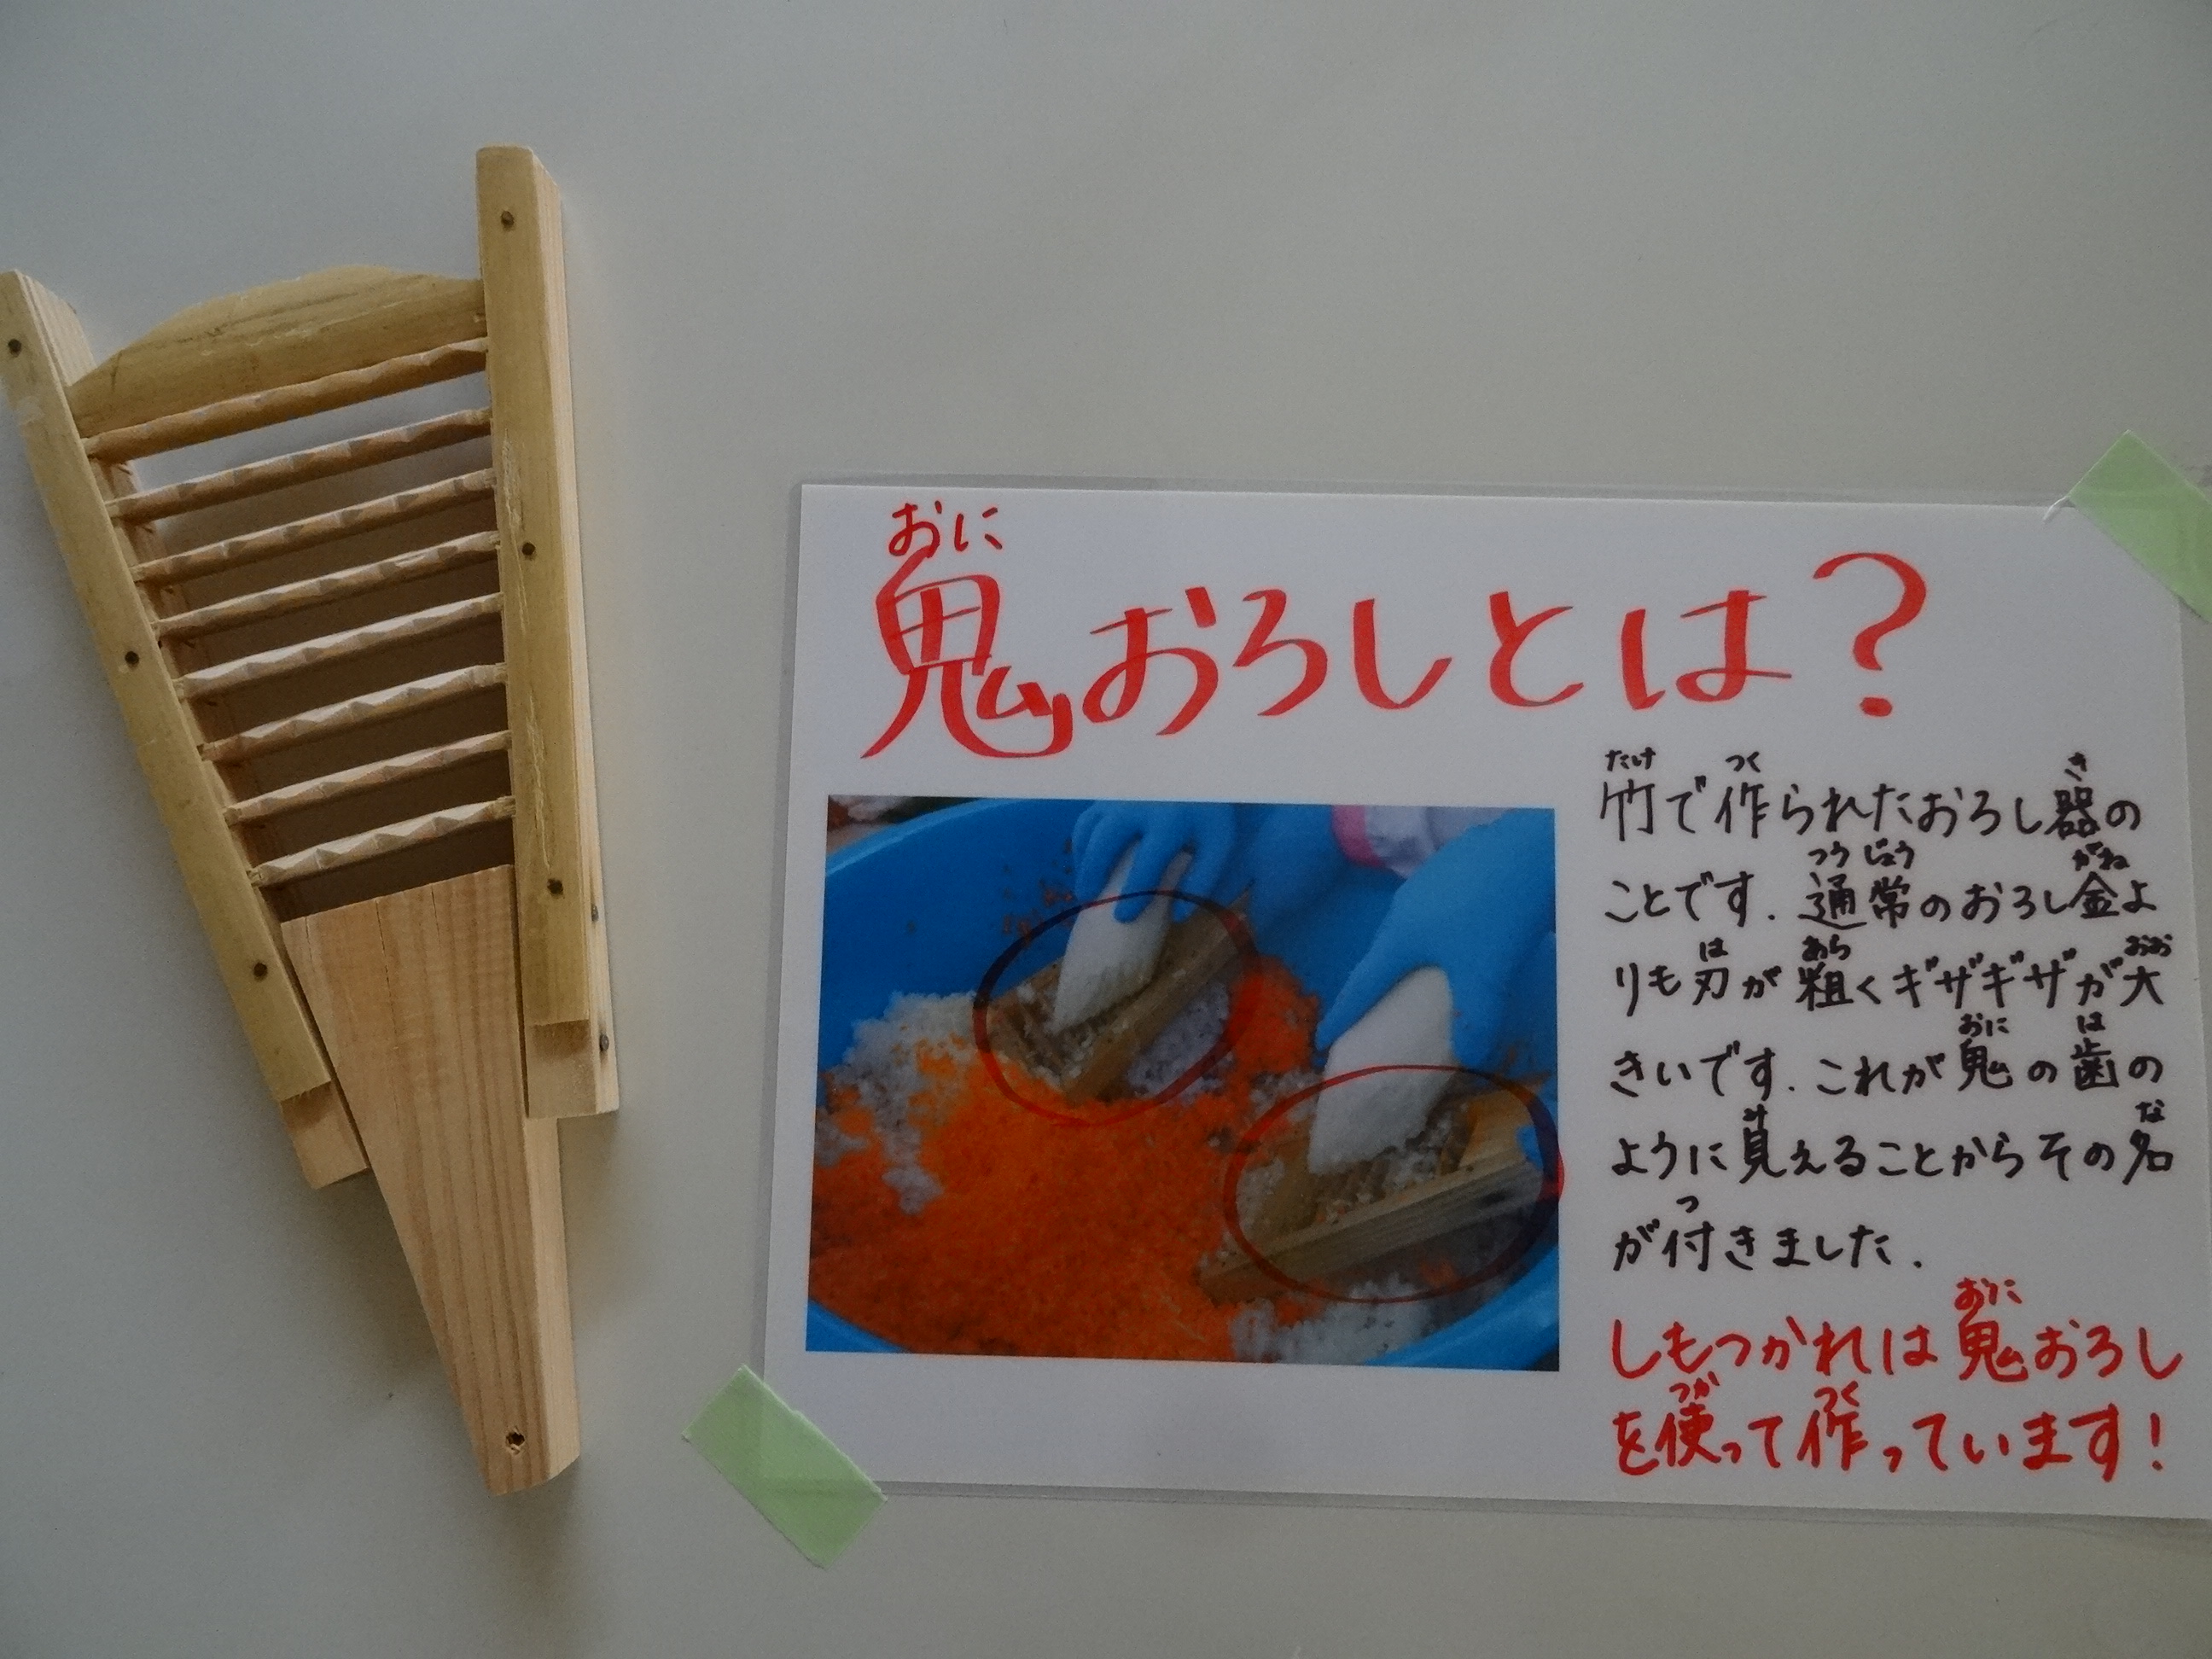 おに
鬼おろしとは？
たけ つく き
竹で作られたおろし器の
つうじょう がね
ことです．通常のおろし金よ
は あら おお
りも刃が粗くギザギザが大
おに は
きいです．これが鬼の歯の
み な
ように見えることからその名
つ
が付きました．
おに
しもつかれは鬼おろし
つか つく
を使って作っています！